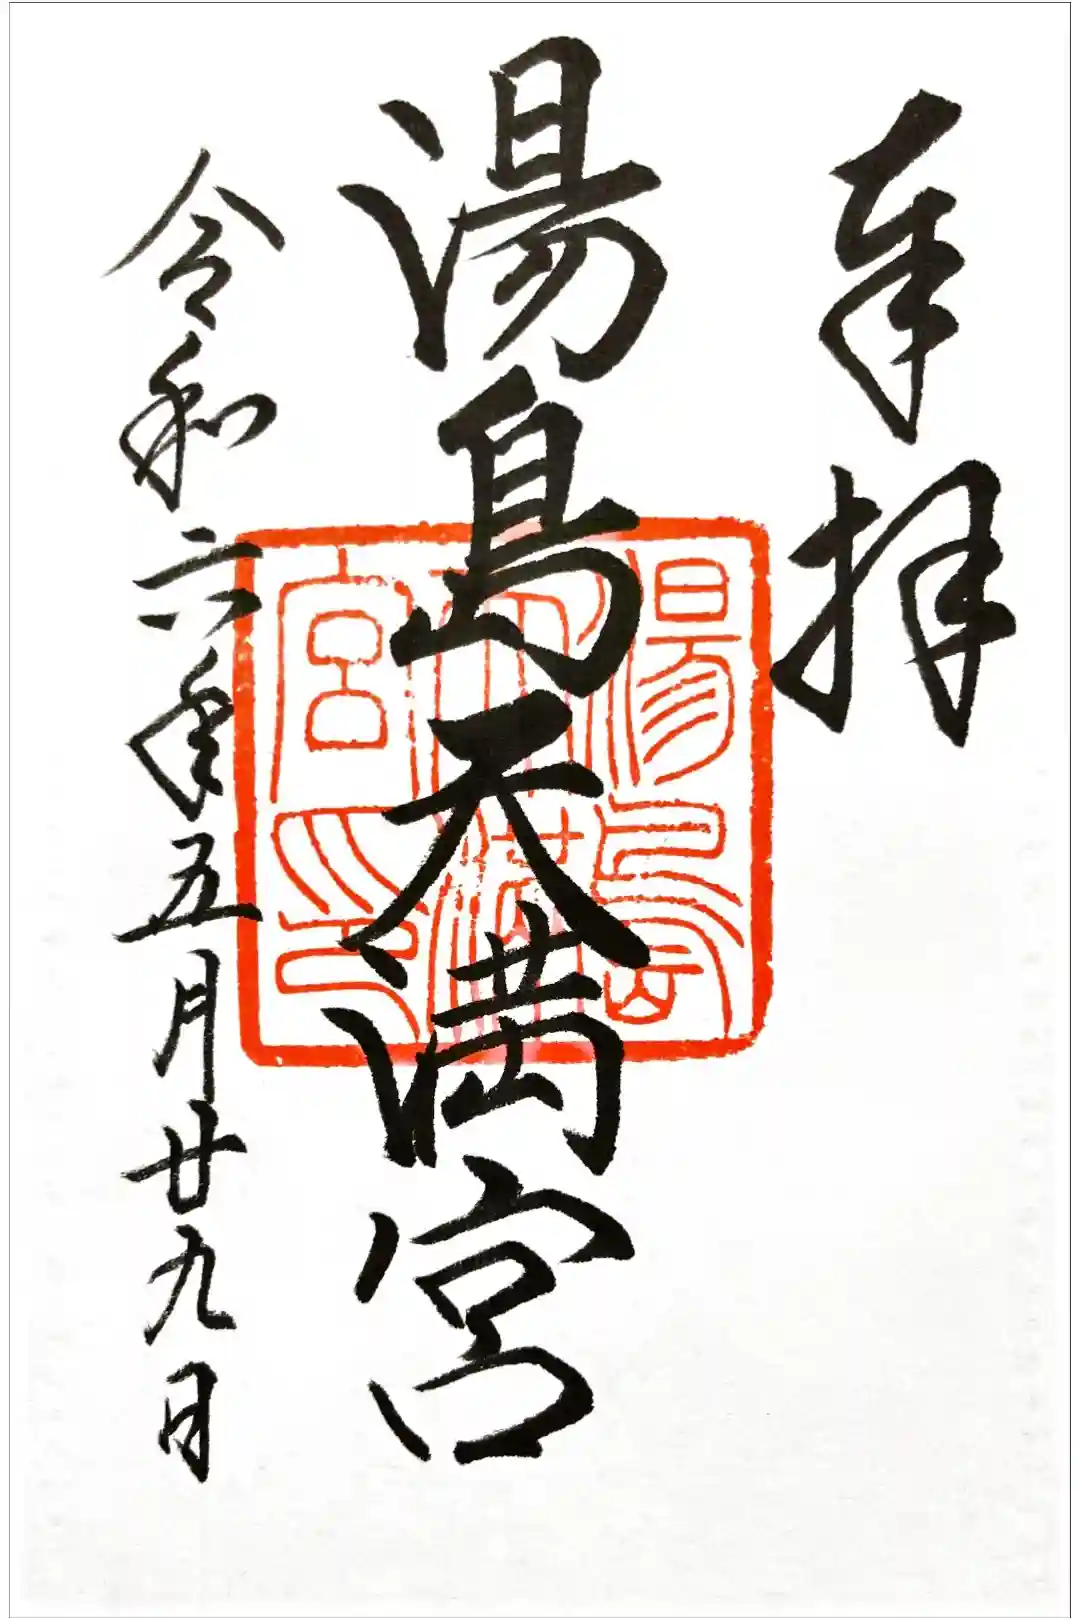 奉拝
湯島天満宮
湯島
天満
宮印
令和六年五月廿九日